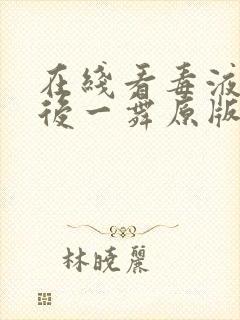 在綫看毒液
後一舞原版
林曉麗